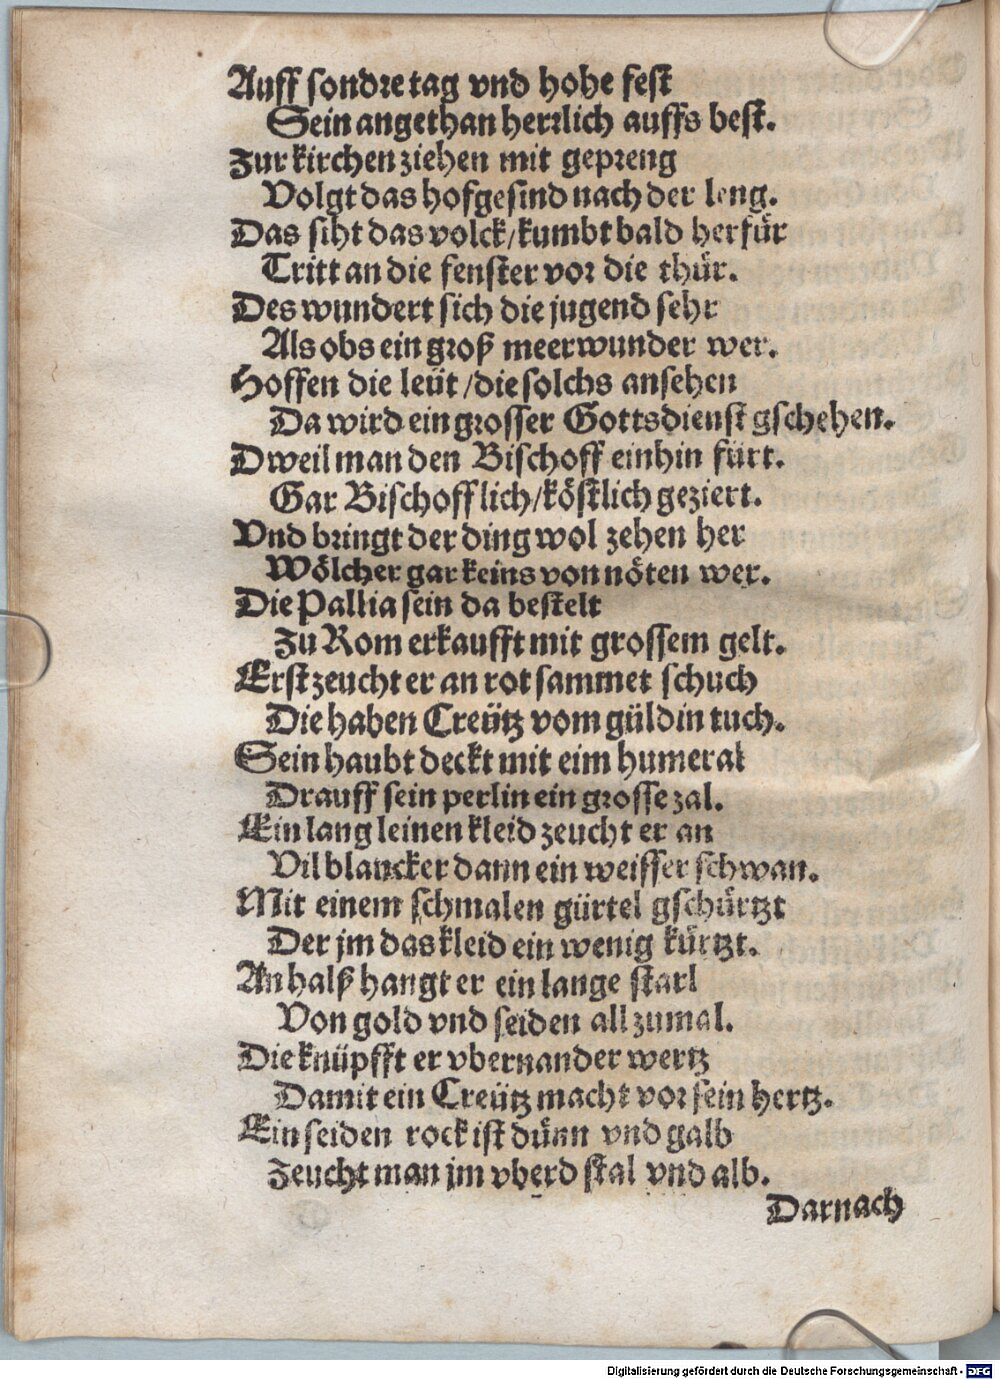 Auff sondre tag vnd hohe fest
Sein angethan herrlich auffs best.
Zur kirchen ziehen mit gepreng
Volgt das hofgesind nach der leng.
Das siht das volck/kumbt bald herfür
Tritt an die fenster vor die thür.
Des wundert sich die jugend sehr
Als obs ein groß meerwunder wer.
Hoffen die leüt/die solchs ansehen
Da wird ein grosser Gottsdienst gschehen.
Dweil man den Bischoff einhin fürt.
Gar Bischofflich/köstlich geziert.
Vnd bringt der ding wol zehen her
Wölcher gar keins von nöten wer.
Die Pallia sein da bestelt
Zu Rom erkaufft mit grossem gelt.
Erst zeucht er an rot sammet schuch
Die haben Creütz vom güldin tuch.
Sein haubt deckt mit eim humeral
Drauff sein perlin ein grosse zal.
Ein lang leinen kleid zeucht er an
Vil blancker dann ein weisser schwan.
Mit einem schmalen gürtel gschürtzt
Der jm das kleid ein wenig kürtzt.
An halß hangt er ein lange starl
Von gold vnd seiden all zumal.
Die knüpfft er vbernander wertz
Damit ein Creütz macht vor sein hertz.
Ein seiden rock ist dünn vnd galb
Zeucht man jm vberd stal vnd alb.
Darnach
Digitalisierung gefördert durch die Deutsche Forschungsgemeinschaft - DFG